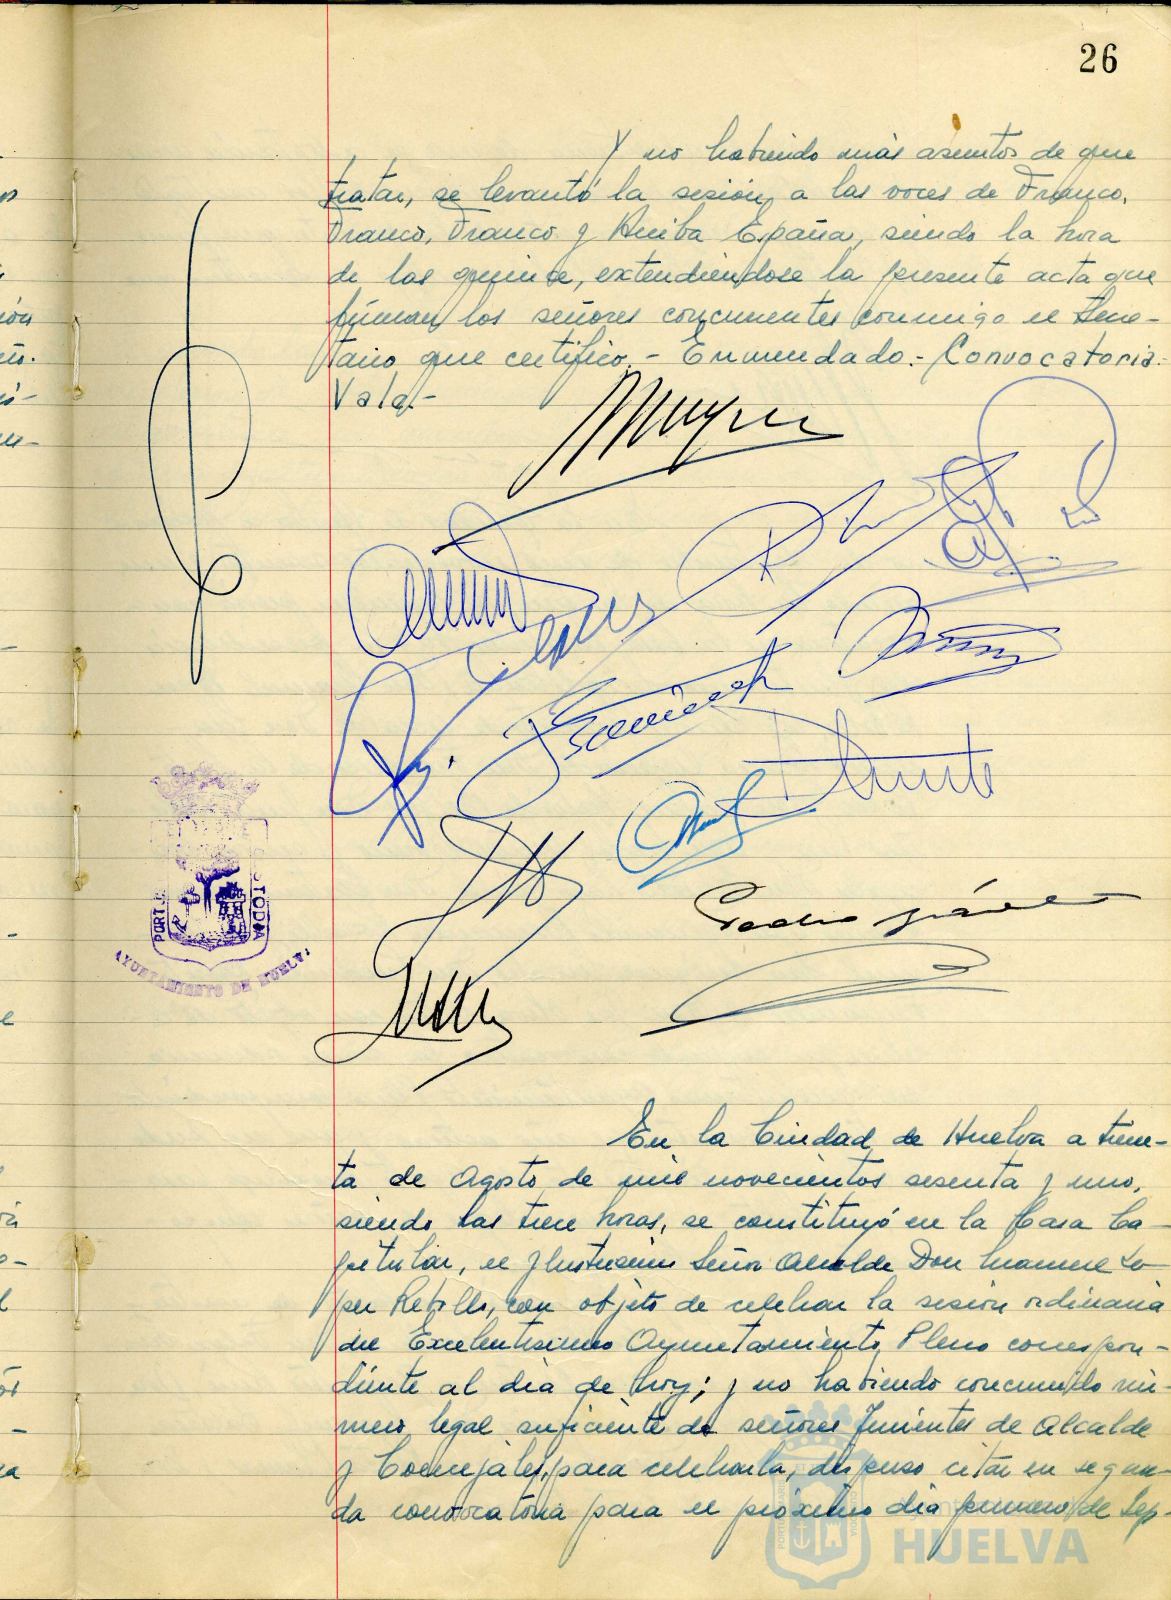 26
Y no habiendo más asuntos de que
tratar, se levantó la sesión, a las voces de Franco,
Franco, Franco y Arriba España, siendo la hora
de las quince, extendiéndose la presente acta que
firman los señores concurrentes conmigo el Secre-
tario que certifico.- Enmendado.- Convocatoria.-
Vale.-
PORTUS
CUSTODIA
AYUNTAMIENTO DE HUELVA
Pedro
En la Ciudad de Huelva a trein-
ta de Agosto de mil novecientos sesenta y uno,
siendo las trece horas, se constituyó en la Casa Ca-
pitular, el Ilustrísimo Señor Alcalde Don Manuel Lo-
pez Rebollo, con objeto de celebrar la sesión ordinaria
del Excelentísimo Ayuntamiento Pleno correspon-
diente al día de hoy; y no habiendo concurrido nú-
mero legal suficiente de señores Tenientes de Alcalde
y Concejales, para celebrarla, dispuso citar en segun-
da convocatoria para el próximo día primero de Sep-
HUELVA